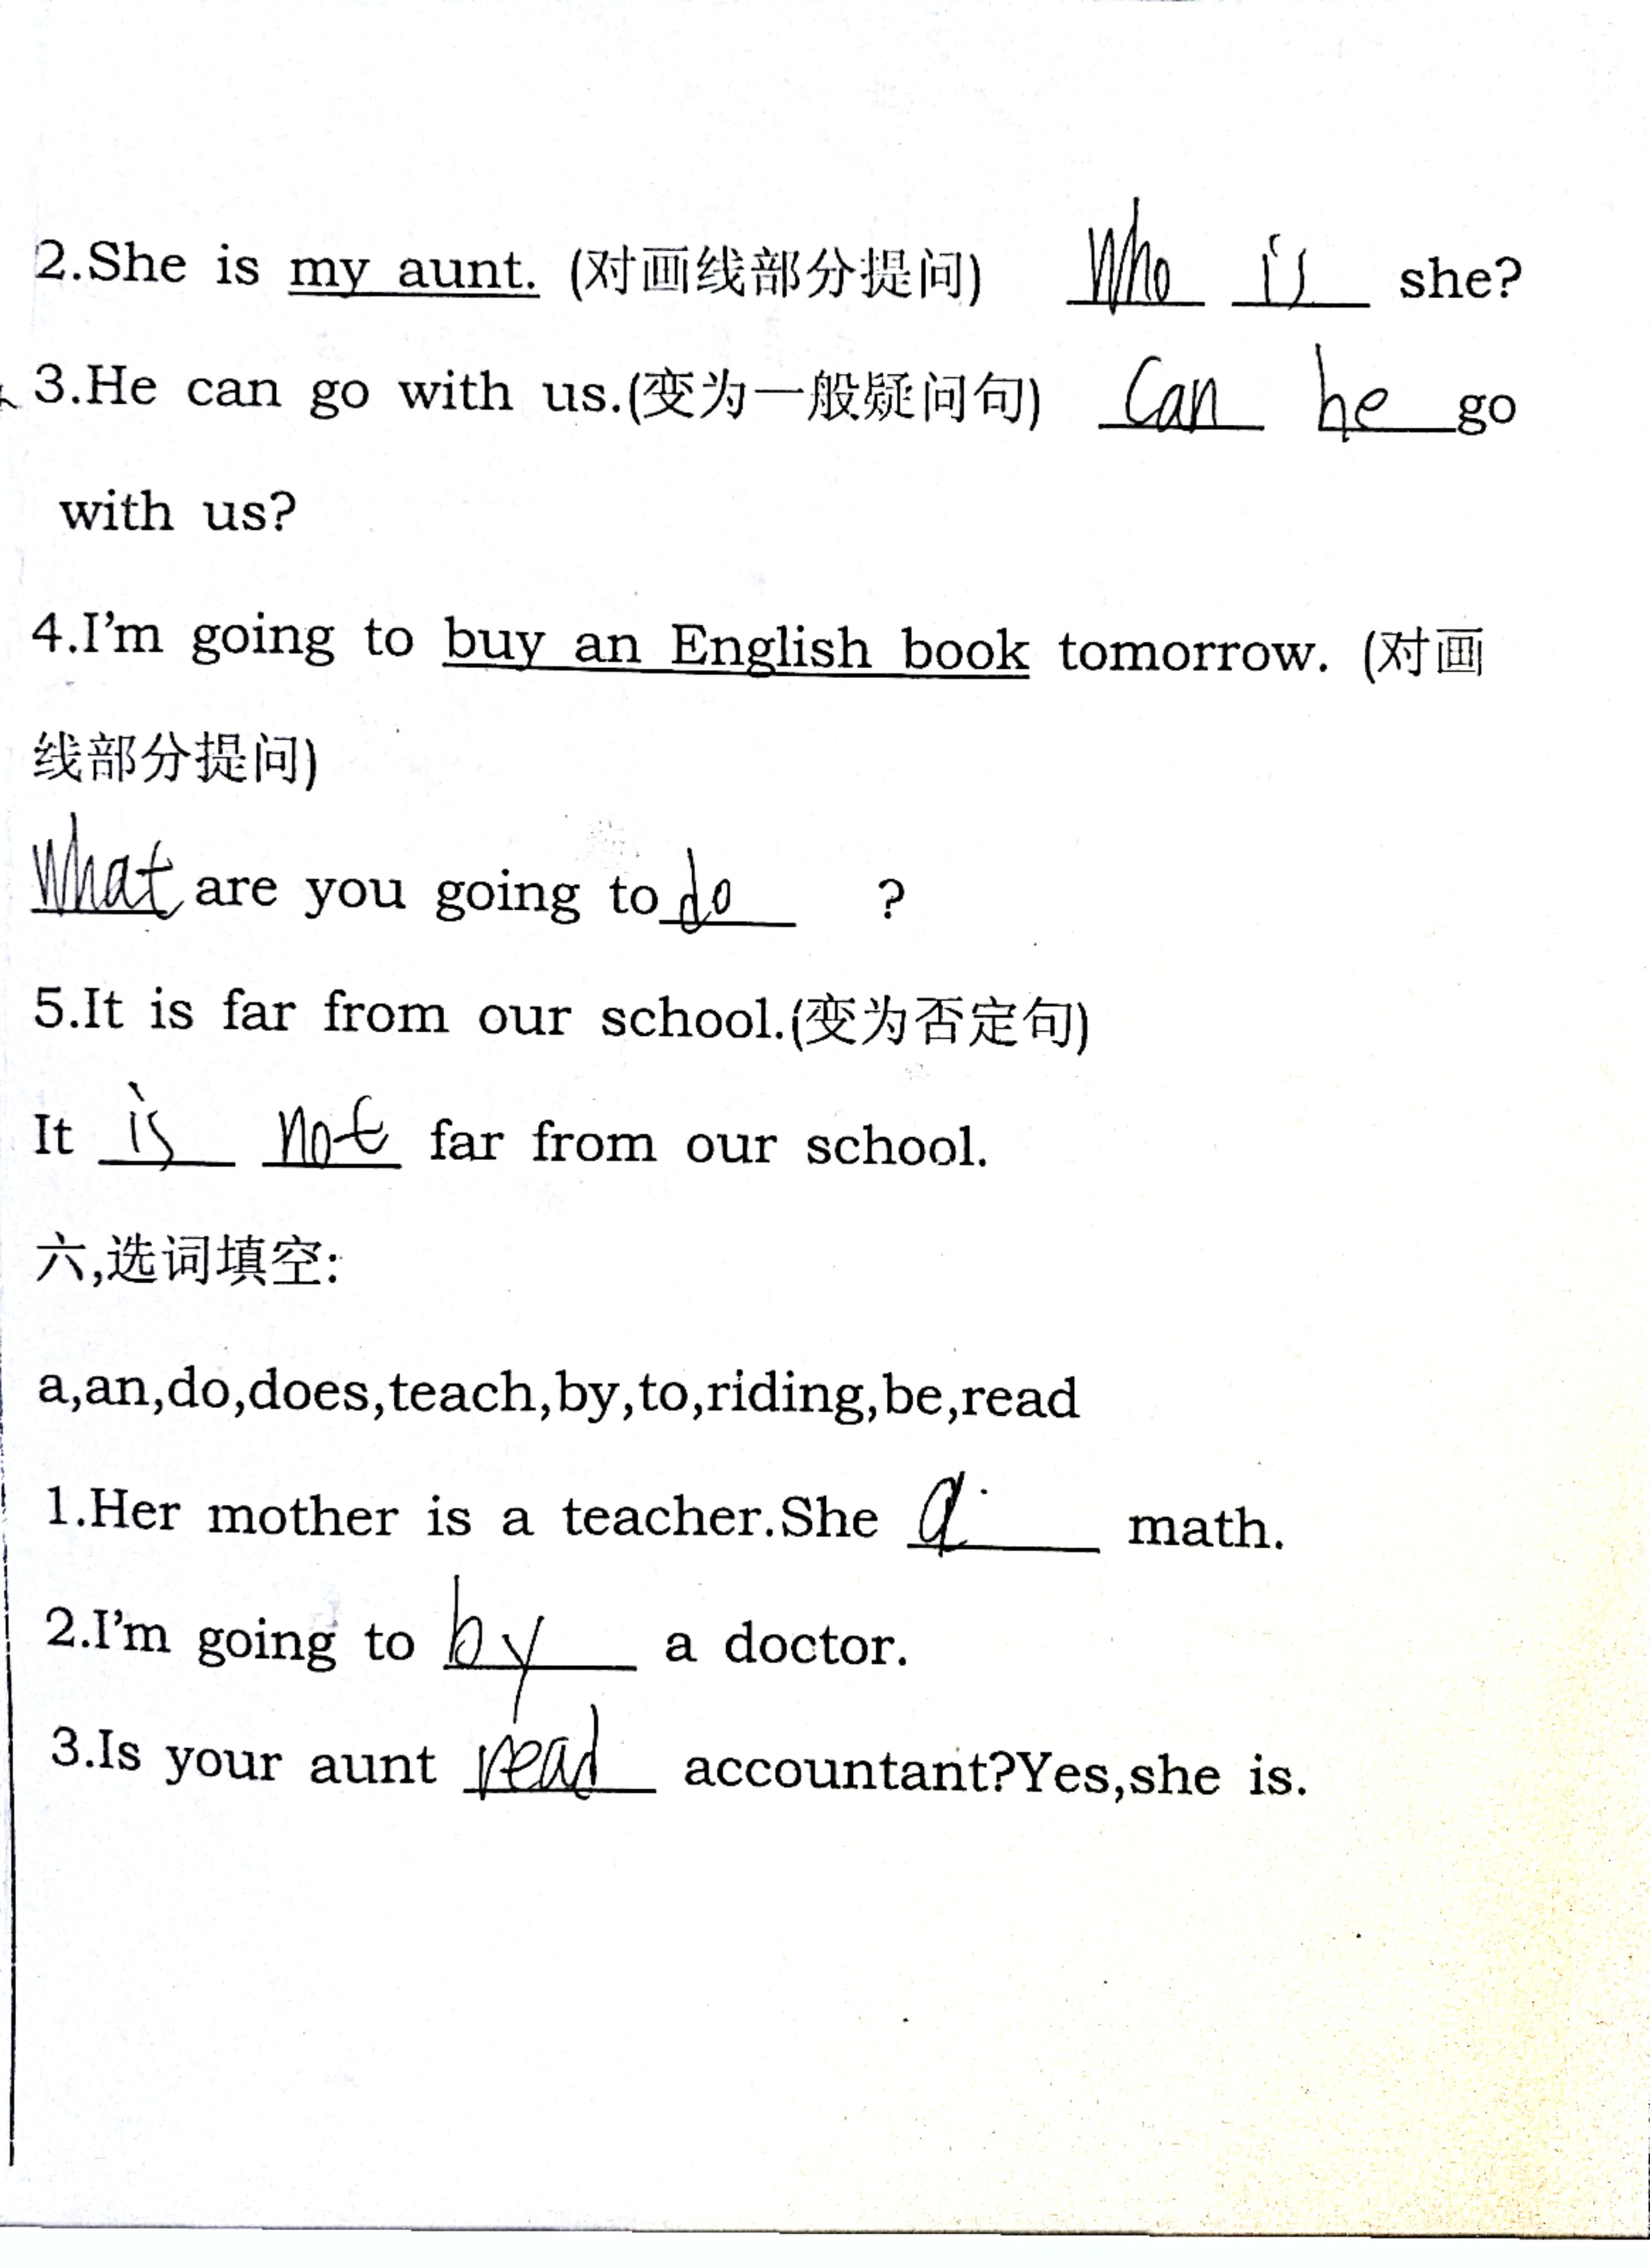 2.She is my aunt. (对画线部分提问) Who is she?
3.He can go with us.(变为一般疑问句) Can he go
with us?
4.I'm going to buy an English book tomorrow. (对画
线部分提问)
What are you going to do ?
5.It is far from our school.(变为否定句)
It is not far from our school.
六,选词填空:
a,an,do,does,teach,by,to,riding,be,read
1.Her mother is a teacher.She a math.
2.I'm going to by a doctor.
3.Is your aunt read accountant?Yes,she is.